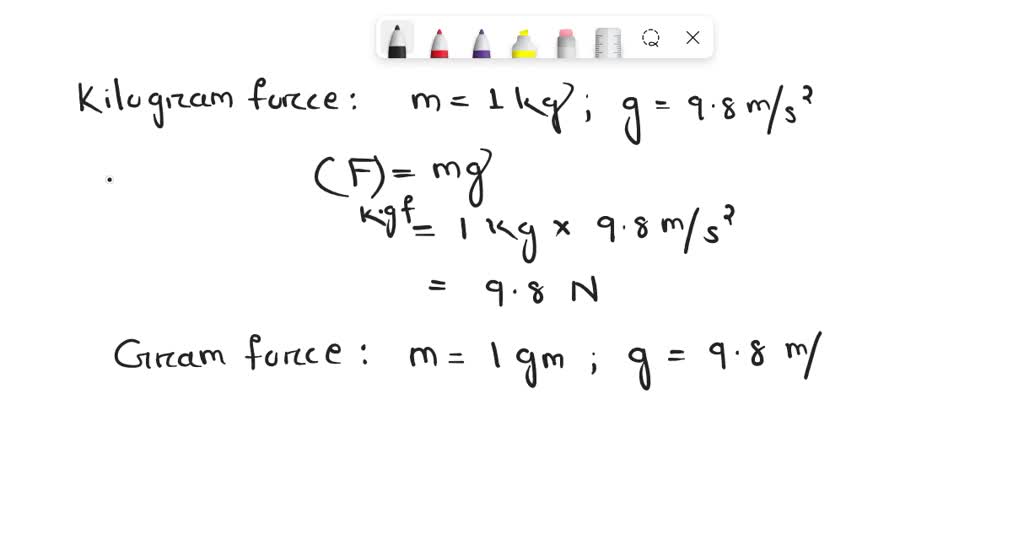 Kilogram force: m = 1 kg; g = 9.8 m/s²
(F) = mg
kgf = 1 kg × 9.8 m/s²
= 9.8 N
Gram force: m = 1 gm; g = 9.8 m/